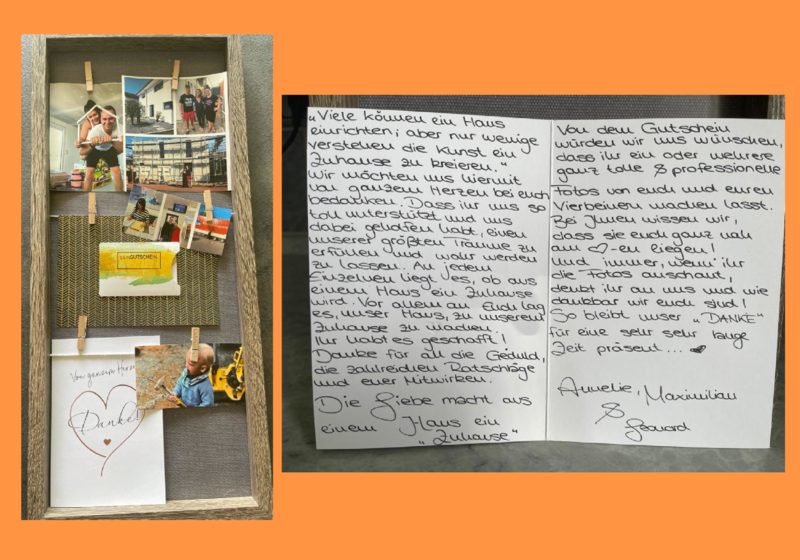 GUTSCHEIN
Von ganzem Herzen
Danke!
„Viele können ein Haus
einrichten; aber nur wenige
verstehen die Kunst ein
Zuhause zu kreieren."
Wir möchten uns hiermit
von ganzem Herzen bei euch
bedanken. Dass ihr uns so
toll unterstützt und uns
dabei geholfen habt, einen
unserer größten Träume zu
erfüllen und wahr werden
zu lassen. An jedem
Einzelnen liegt es, ob aus
einem Haus ein Zuhause
wird. Vor allem an Euch lag
es, unser Haus, zu unserem
Zuhause zu machen.
Ihr habt es geschafft!
Danke für all die Geduld,
die zahlreichen Ratschläge
und euer Mitwirken.
Die Liebe macht aus
einem Haus ein
„Zuhause"
Von dem Gutschein
würden wir uns wünschen,
dass ihr ein oder mehrere
ganz tolle & professionelle
Fotos von euch und euren
Vierbeinern machen lasst.
Bei Ihnen wissen wir,
dass sie euch ganz nah
am ♡-en liegen!
Und immer, wenn ihr
die Fotos anschaut,
denkt ihr an uns und wie
dankbar wir euch sind!
So bleibt unser „DANKE"
für eine sehr sehr lange
Zeit präsent... ♥
Annelie, Maximilian
&